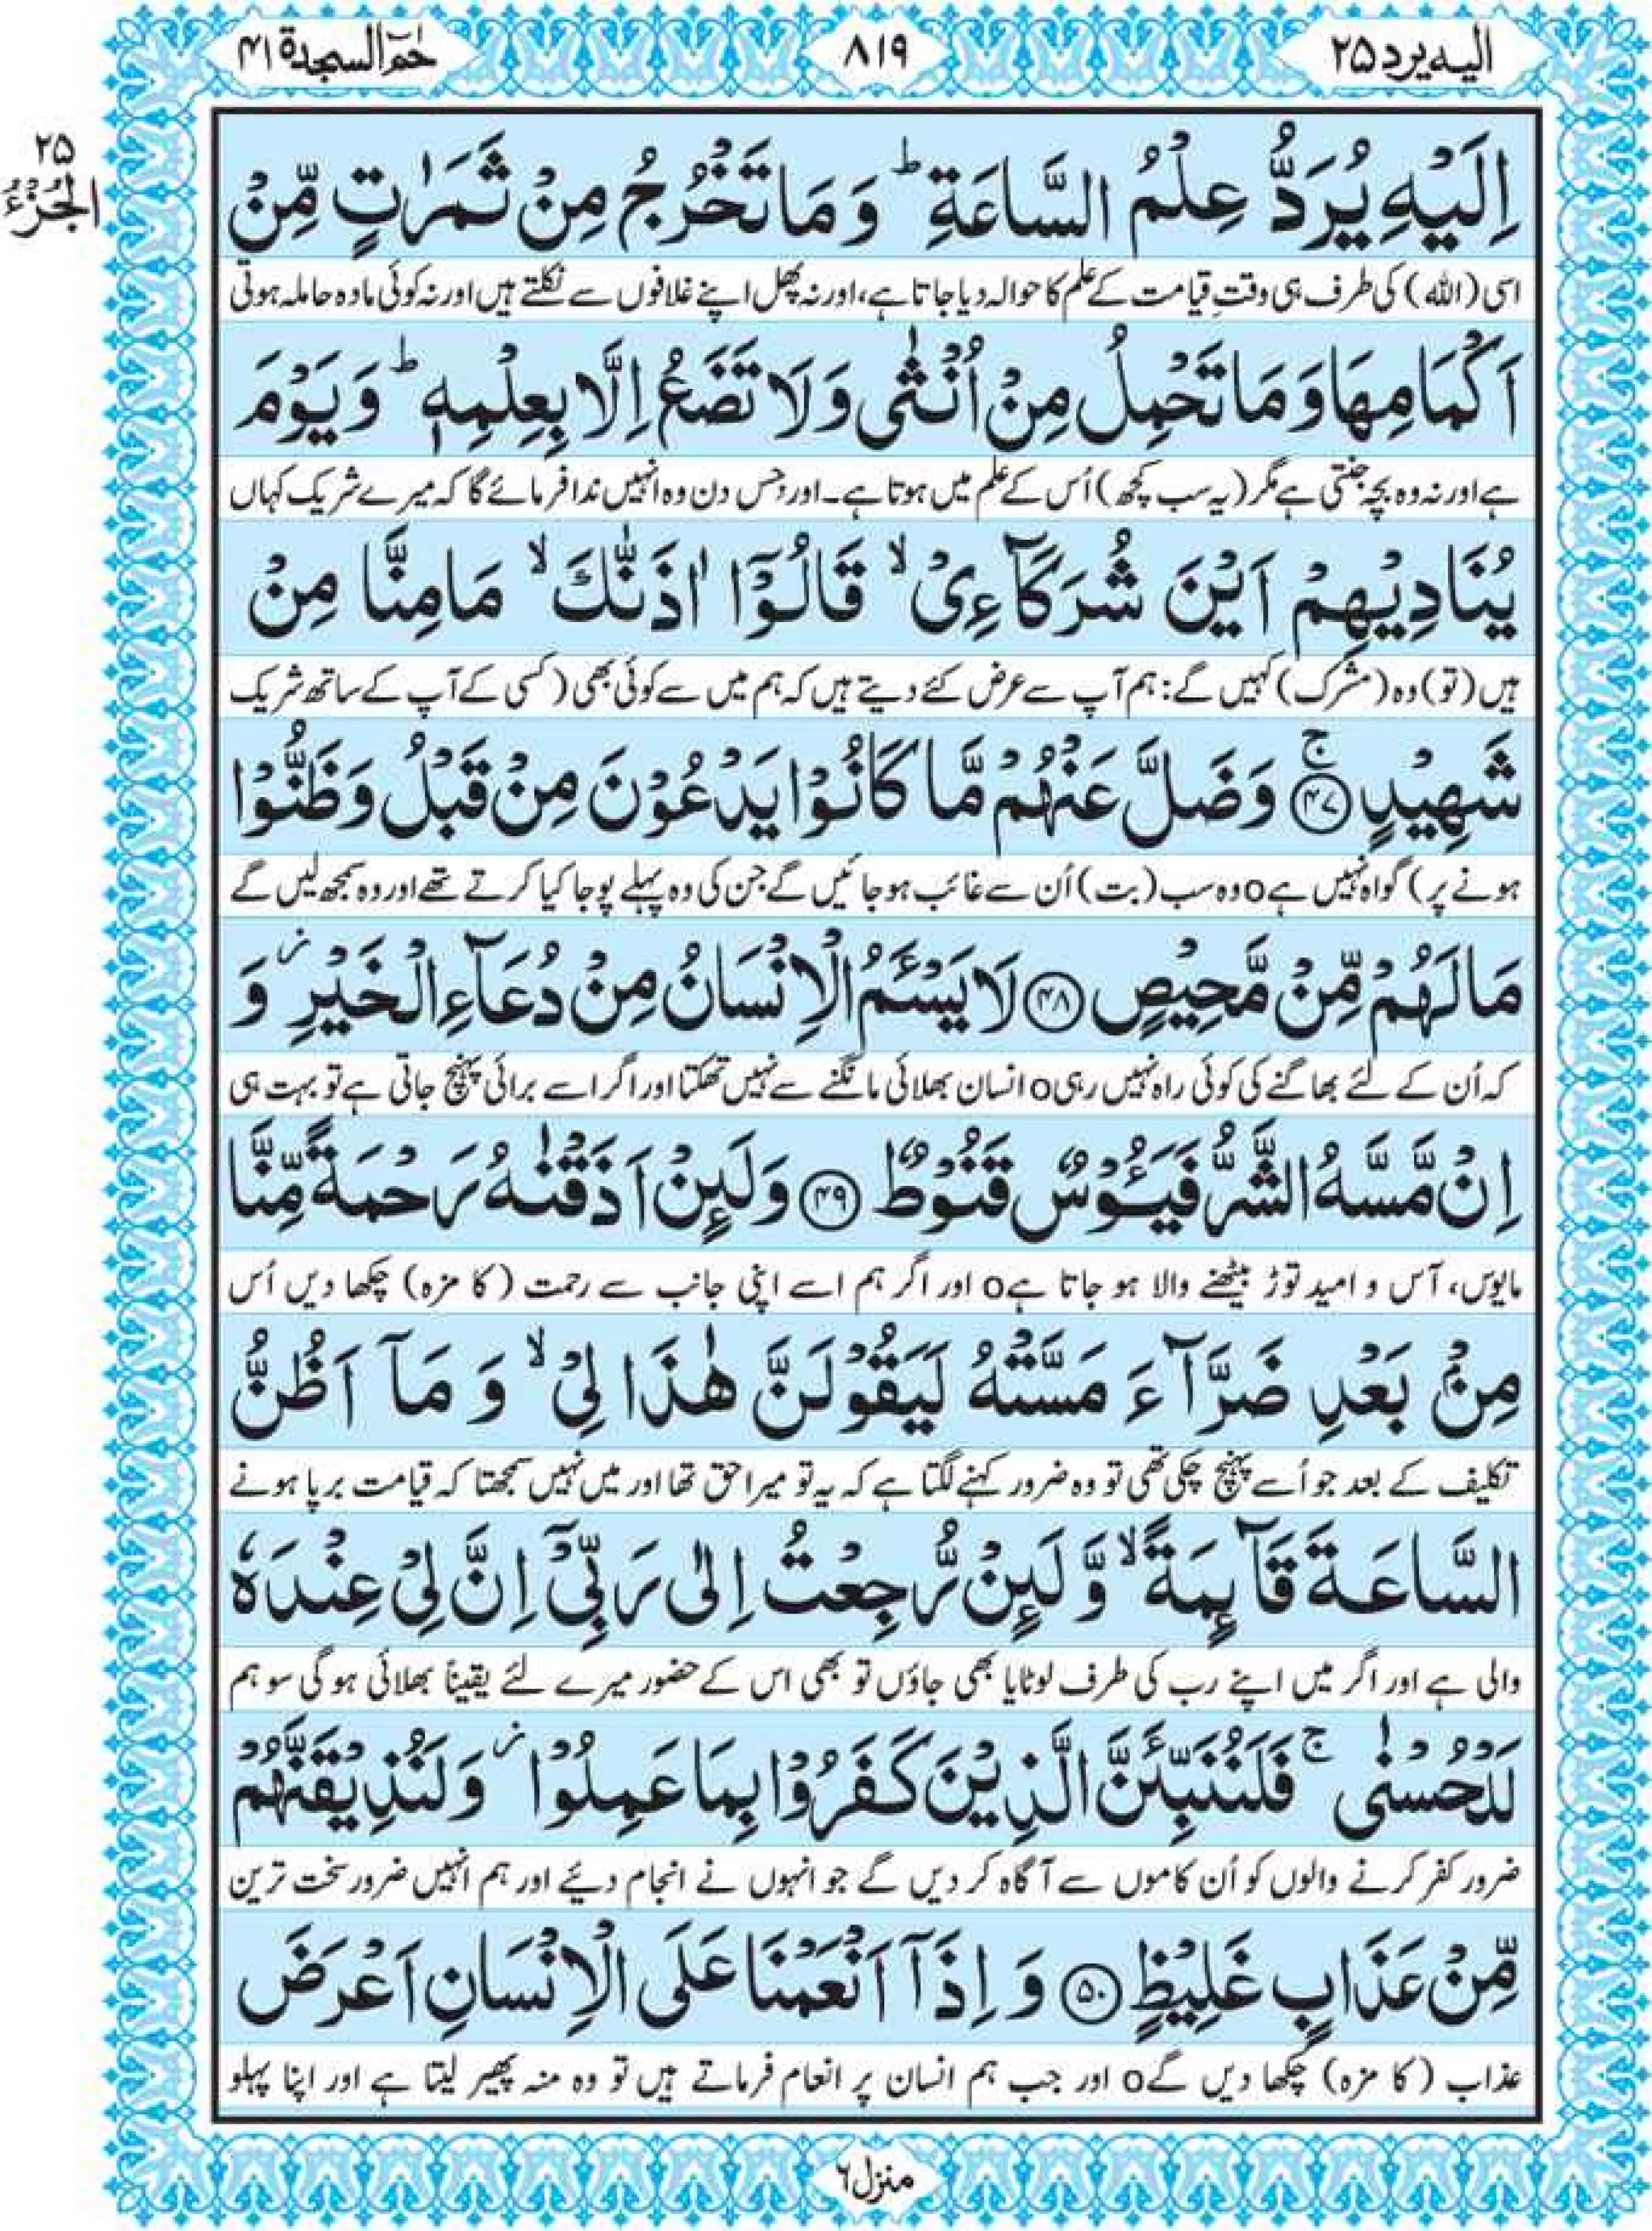 الیہ یرد ۲۵
۸۱۹
حٰمٓ السجدۃ ۴۱
۲۵
اَلْجُزْءُ
اِلَیْهِ یُرَدُّ عِلْمُ السَّاعَةِ ؕ وَ مَا تَخْرُجُ مِنْ ثَمَرٰتٍ مِّنْ
اسی (اللہ) کی طرف ہی وقتِ قیامت کے علم کا حوالہ دیا جاتا ہے، اور نہ پھل اپنے غلافوں سے نکلتے ہیں اور نہ کوئی مادہ حاملہ ہوتی
اَكْمَامِهَا وَ مَا تَحْمِلُ مِنْ اُنْثٰی وَ لَا تَضَعُ اِلَّا بِعِلْمِهٖ ؕ وَ یَوْمَ
ہے اور نہ وہ بچہ جنتی ہے مگر (یہ سب کچھ) اُس کے علم میں ہوتا ہے۔ اور جس دن وہ انہیں ندا فرمائے گا کہ میرے شریک کہاں
یُنَادِیْهِمْ اَیْنَ شُرَكَآءِیْ ۙ قَالُوْۤا اٰذَنّٰكَ ۙ مَا مِنَّا مِنْ
ہیں (تو) وہ (مشرک) کہیں گے: ہم آپ سے عرض کئے دیتے ہیں کہ ہم میں سے کوئی بھی (کسی کے آپ کے ساتھ شریک
شَهِیْدٍ ۚ﴿۴۷﴾ وَ ضَلَّ عَنْهُمْ مَّا كَانُوْا یَدْعُوْنَ مِنْ قَبْلُ وَ ظَنُّوْا
ہونے پر) گواہ نہیں ہےo وہ سب (بت) اُن سے غائب ہو جائیں گے جن کی وہ پہلے پوجا کیا کرتے تھے اور وہ سمجھ لیں گے
مَا لَهُمْ مِّنْ مَّحِیْصٍ ﴿۴۸﴾ لَا یَسْـَٔمُ الْاِنْسَانُ مِنْ دُعَآءِ الْخَیْرِ ؗ وَ
کہ اُن کے لئے بھاگنے کی کوئی راہ نہیں رہیo انسان بھلائی مانگنے سے نہیں تھکتا اور اگر اسے برائی پہنچ جاتی ہے تو بہت ہی
اِنْ مَّسَّهُ الشَّرُّ فَیَـُٔوْسٌ قَنُوْطٌ ﴿۴۹﴾ وَ لَىِٕنْ اَذَقْنٰهُ رَحْمَةً مِّنَّا
مایوس، آس و امید توڑ بیٹھنے والا ہو جاتا ہےo اور اگر ہم اسے اپنی جانب سے رحمت (کا مزہ) چکھا دیں اُس
مِنْۢ بَعْدِ ضَرَّآءَ مَسَّتْهُ لَیَقُوْلَنَّ هٰذَا لِیْ ۙ وَ مَاۤ اَظُنُّ
تکلیف کے بعد جو اُسے پہنچ چکی تھی تو وہ ضرور کہنے لگتا ہے کہ یہ تو میرا حق تھا اور میں نہیں سمجھتا کہ قیامت برپا ہونے
السَّاعَةَ قَآىِٕمَةً ۙ وَّ لَىِٕنْ رُّجِعْتُ اِلٰی رَبِّیْۤ اِنَّ لِیْ عِنْدَهٗ
والی ہے اور اگر میں اپنے رب کی طرف لوٹایا بھی جاؤں تو بھی اس کے حضور میرے لئے یقیناً بھلائی ہو گی سو ہم
لَلْحُسْنٰی ۚ فَلَنُنَبِّئَنَّ الَّذِیْنَ كَفَرُوْا بِمَا عَمِلُوْا ؗ وَ لَنُذِیْقَنَّهُمْ
ضرور کفر کرنے والوں کو اُن کاموں سے آگاہ کر دیں گے جو انہوں نے انجام دیئے اور ہم انہیں ضرور سخت ترین
مِّنْ عَذَابٍ غَلِیْظٍ ﴿۵۰﴾ وَ اِذَاۤ اَنْعَمْنَا عَلَی الْاِنْسَانِ اَعْرَضَ
عذاب (کا مزہ) چکھا دیں گےo اور جب ہم انسان پر انعام فرماتے ہیں تو وہ منہ پھیر لیتا ہے اور اپنا پہلو
منزل ۶